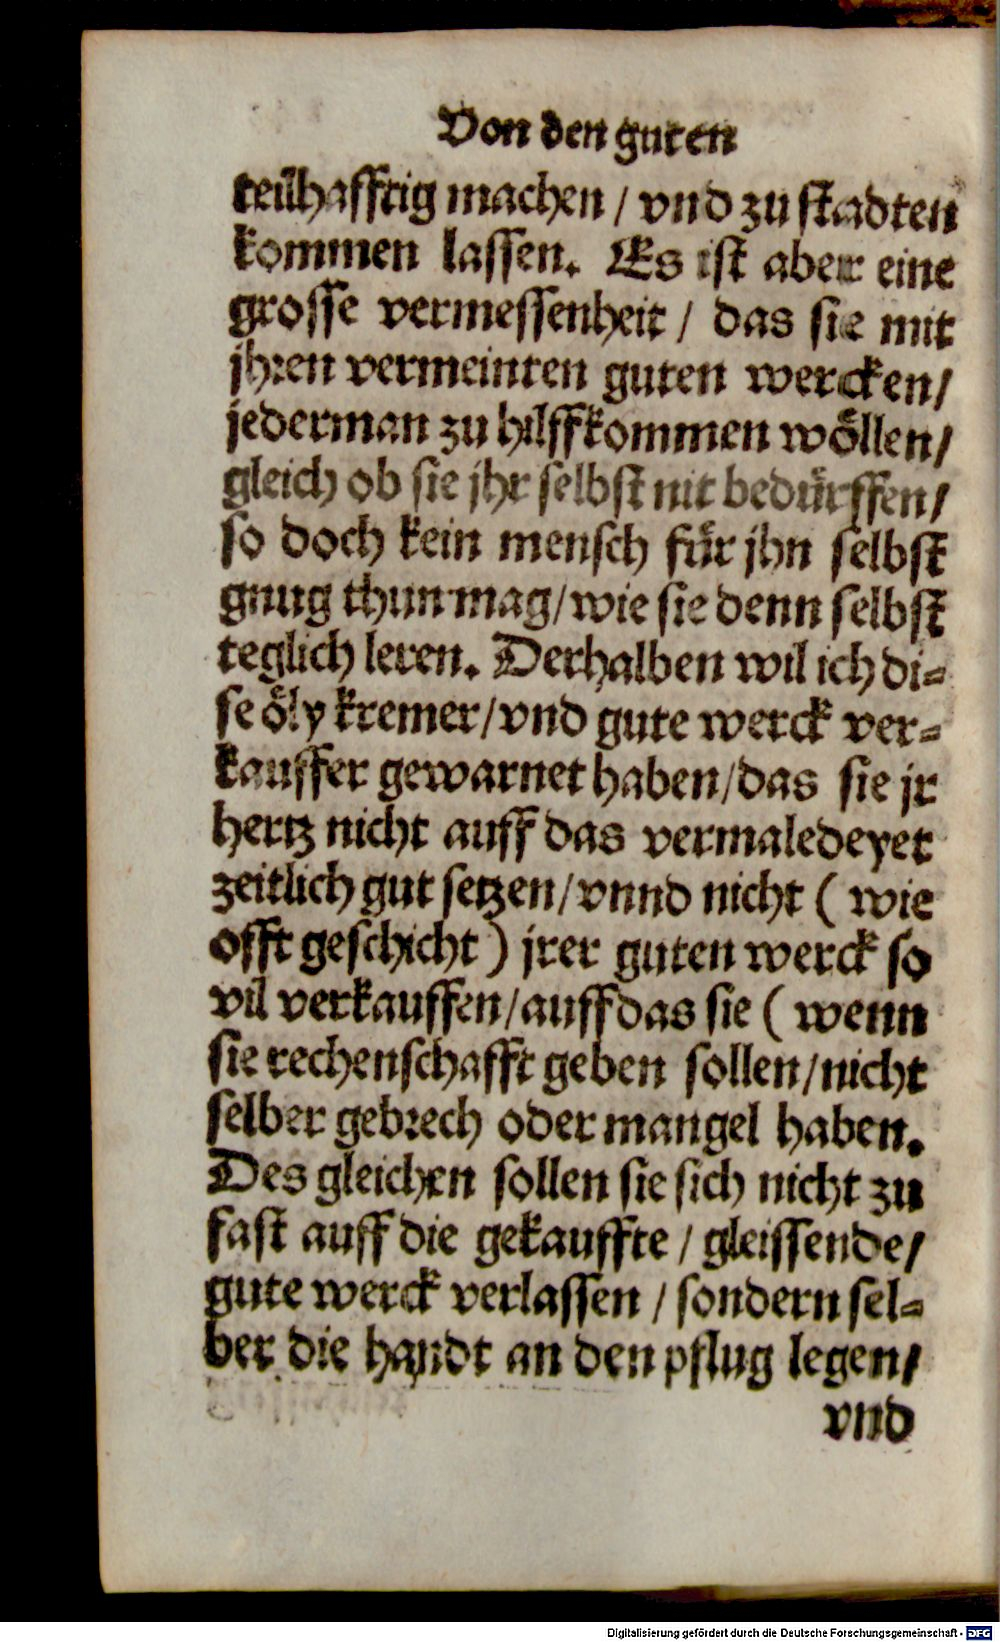 Von den guten
teilhafftig machen / vnd zu stadten
kommen lassen. Es ist aber eine
grosse vermessenheit / das sie mit
jhren vermeinten guten wercken/
jederman zu hilff kommen wöllen/
gleich ob sie jhr selbst nit bedürffen/
so doch kein mensch für jhn selbst
gnug thun mag/ wie sie denn selbst
teglich leren. Derhalben wil ich di-
se öly kremer/ vnd gute werck ver-
kauffer gewarnet haben/ das sie jr
hertz nicht auff das vermaledeyet
zeitlich gut setzen/ vnnd nicht ( wie
offt geschicht ) jrer guten werck so
vil verkauffen/ auff das sie ( wenn
sie rechenschafft geben sollen/ nicht
selber gebrech oder mangel haben.
Des gleichen sollen sie sich nicht zu
fast auff die gekauffte / gleissende/
gute werck verlassen / sondern sel-
ber die handt an den pflug legen/
vnd
Digitalisierung gefördert durch die Deutsche Forschungsgemeinschaft - DFG